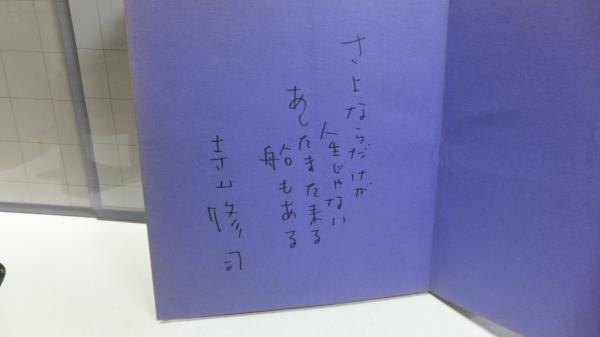 さよならだけが
人生じゃない
あしたまた来る
船もある
寺山修司